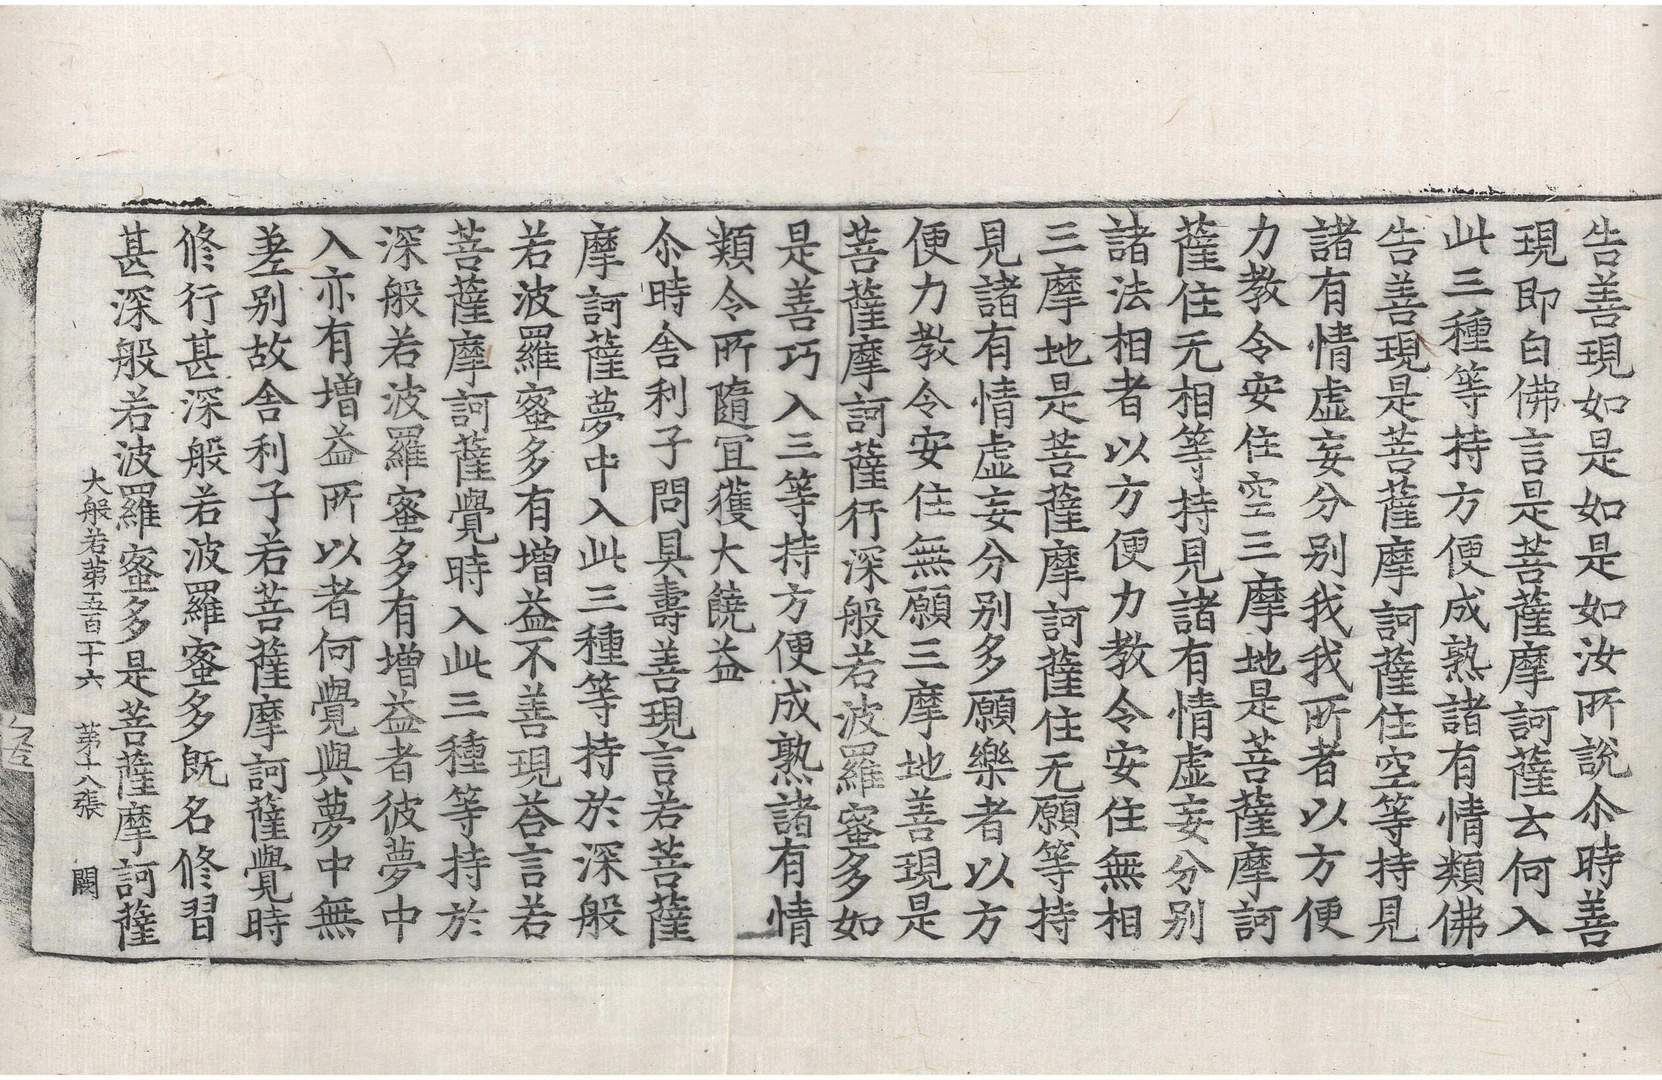 告善現如是如是如汝所說尒時善
現即白佛言是菩薩摩訶薩云何入
此三種等持方便成熟諸有情類佛
告善現是菩薩摩訶薩住空等持見
諸有情虛妄分別我我所者以方便
力教令安住空三摩地是菩薩摩訶
薩住无相等持見諸有情虛妄分別
諸法相者以方便力教令安住無相
三摩地是菩薩摩訶薩住无願等持
見諸有情虛妄分別多願樂者以方
便力教令安住無願三摩地善現是
菩薩摩訶薩行深般若波羅蜜多如
是善巧入三等持方便成熟諸有情
類令所隨冝獲大饒益
尒時舍利子問具壽善現言若菩薩
摩訶薩夢中入此三種等持於深般
若波羅蜜多有增益不善現荅言若
菩薩摩訶薩覺時入此三種等持於
深般若波羅蜜多有增益者彼夢中
入亦有增益所以者何覺與夢中無
差別故舍利子若菩薩摩訶薩覺時
修行甚深般若波羅蜜多既名修習
甚深般若波羅蜜多是菩薩摩訶薩
大般若第五百一十六 第十八張 闕